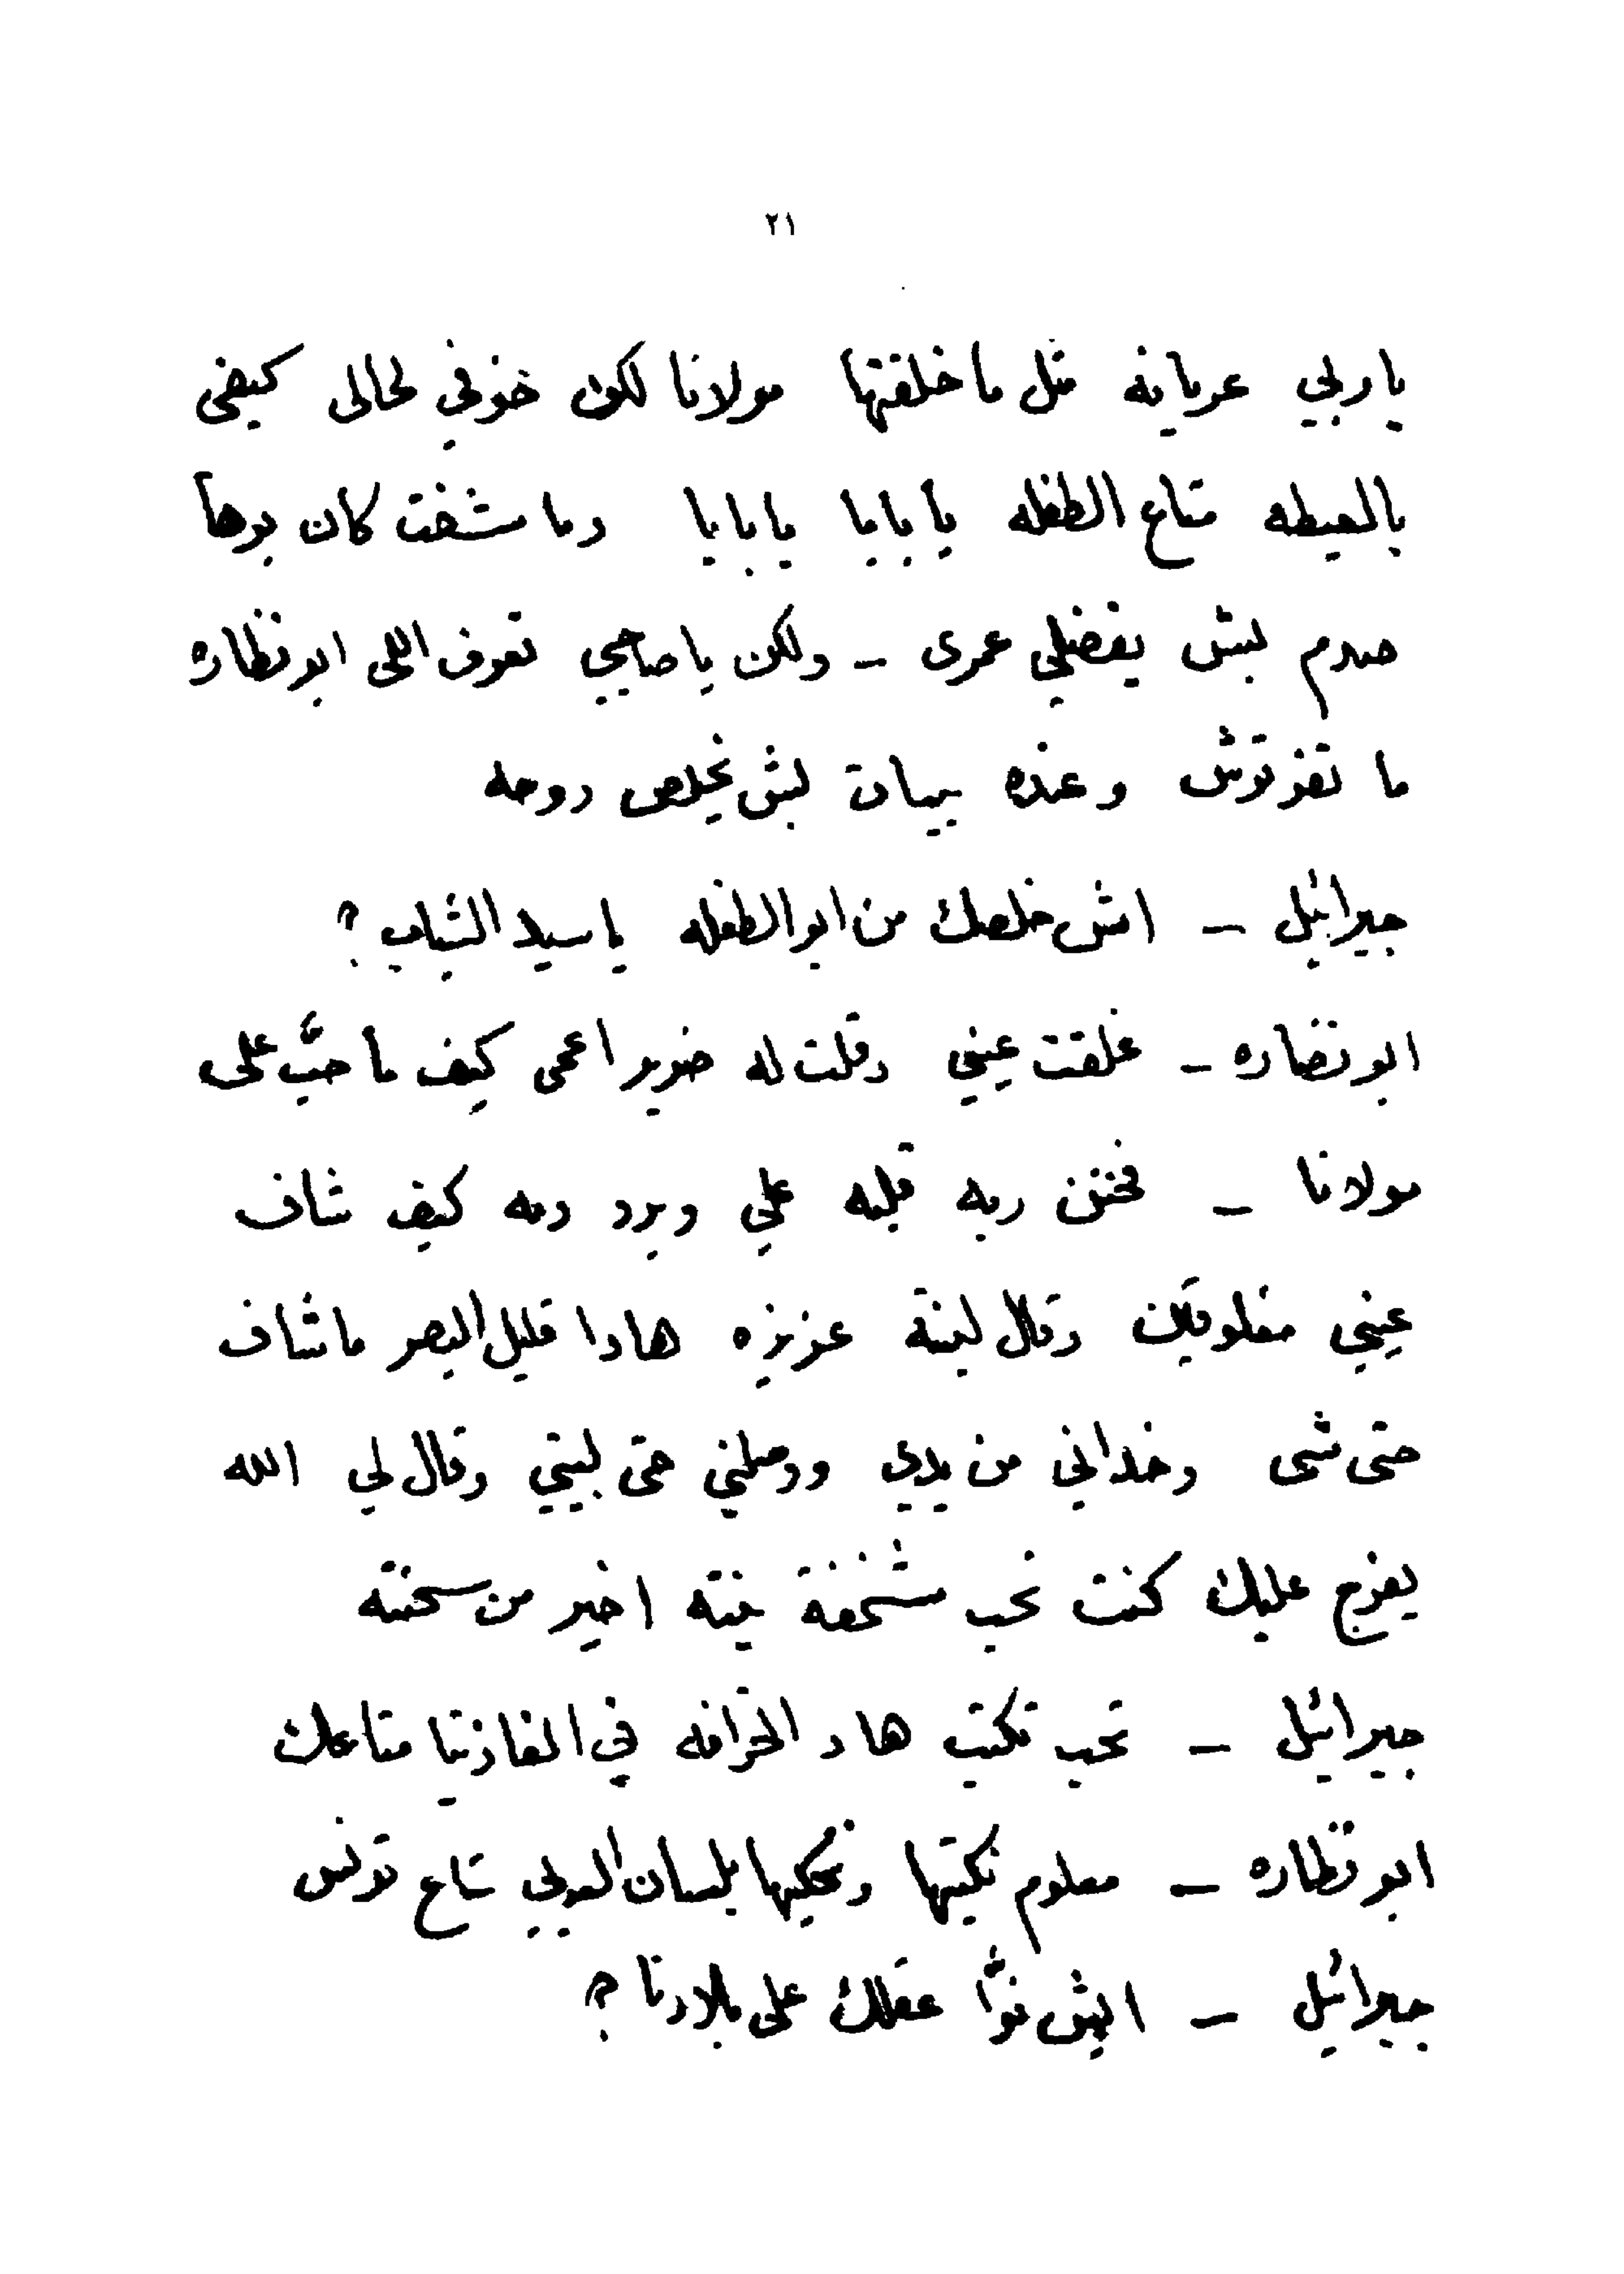 ٢١
ياربي عريانه مثل ما خلقتها مولانا لكن خوفي لحالى كيفى
بالعيطه متاع الطفله يا بابا يا بابا وما شفت كان بوها
صدم ليش يفضلي عمرى – ولكن يا صاحبي تعرف اللى ابو نظاره
ما تفوتوش وعنده بيبان ليش يخلص روحه
جبرائيل – اش خلصك من ابو الطفله يا سيد الشباب ؟
ابو نضاره – غلقت عيني وقلت له ضرير اعمى كيف ما حبّ على
مولانا – فحنن ربه قلبه علي وبرد دمه كيف شاف
عيني مغلوقين وقال لبنته عزيزه هادا قليل البصر ما شاف
حتى شى وخداني من يدي ووصلني حتى لبيتي وقال لي الله
يفرج عليك كنت نحب شخفة بنته اخير من سحنته
جبرائيل – تحب تكتب هاد الخرافه في الغازيتا متاعك
ابو نظاره – معلوم نكتبها ونحكيها بلسان البولي متاع تونس
جبرائيل – ايش نوّا عقلك على بلادنا ؟